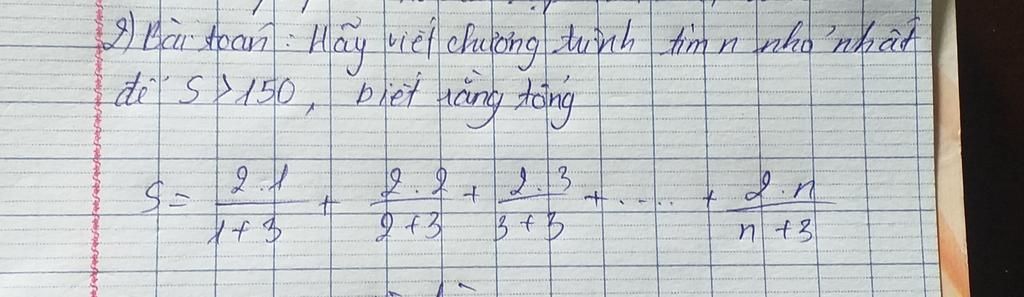 2) Bài toán: Hãy viết chương trình tìm n nhỏ nhất
để S > 150, biết rằng tổng
S = 2.1/1+3 + 2.2/2+3 + 2.3/3+3 + ..... + 2.n/n+3